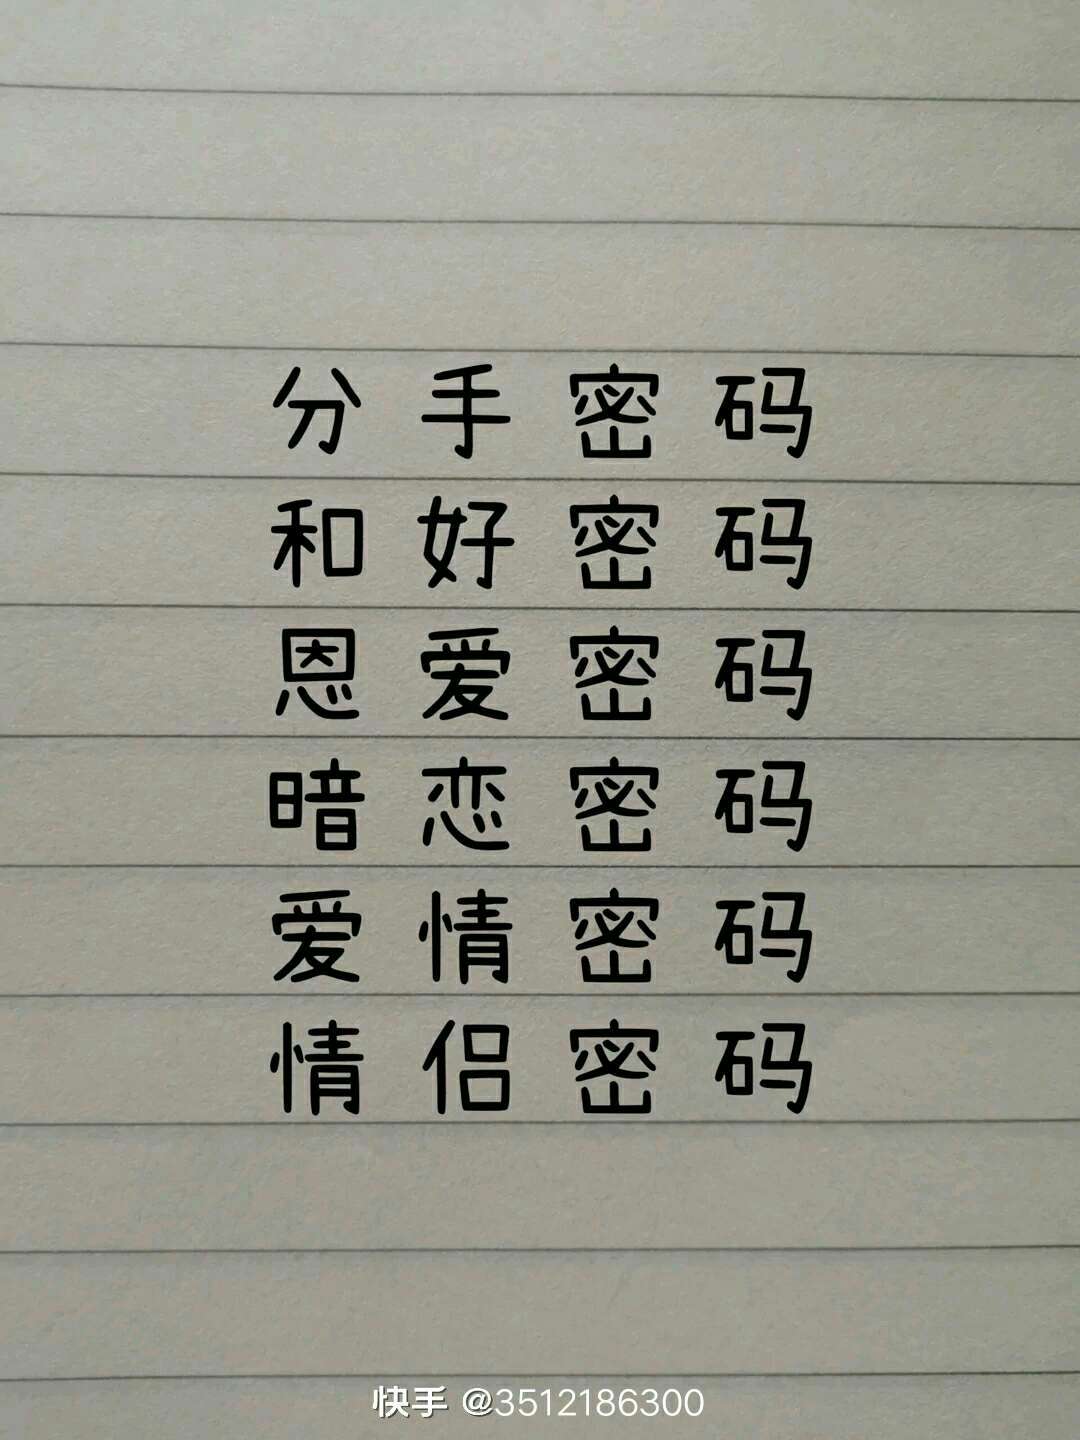 分手密码
和好密码
恩爱密码
暗恋密码
爱情密码
情侣密码
快手 @3512186300